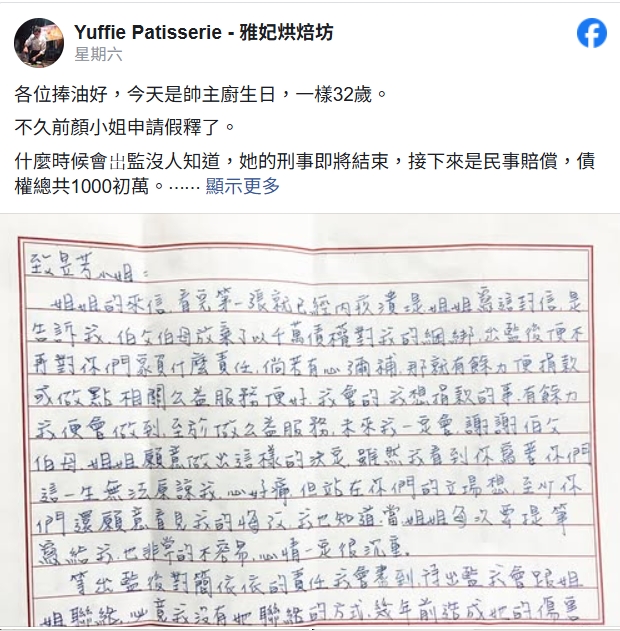 Yuffie Patisserie - 雅妃烘焙坊
星期六
各位捧油好，今天是帥主廚生日，一樣32歲。
不久前顏小姐申請假釋了。
什麼時候會出監沒人知道，她的刑事即將結束，接下來是民事賠償，債
權總共1000初萬。…… 顯示更多
致昱芳小姐：
姐姐的來信,看見第一張就已經內疚潰堤,姐姐寫這封信,是
告訴我,伯父伯母放棄了以千萬債權對我的綑綁,出監後便不
再對你們家負什麼責任,倘若有心彌補,那就有餘力便捐款
或做點相關公益服務便好,我會的,我想捐款的事,有餘力
我便會做到,至於做公益服務,未來我一定會,謝謝伯父
伯母、姐姐願意做出這樣的決定,雖然我看到你寫著你們
這一生無法原諒我,心好痛,但站在你們的立場想,至少你
們還願意看見我的悔改,我也知道,當姐姐每次要提筆
寫給我,也非常的不容易,心情一定很沉重。
等出監後對簡依依的責任我會盡到,待出監我會跟姐
姐聯絡,必竟我沒有她聯絡的方式,幾年前造成她的傷害